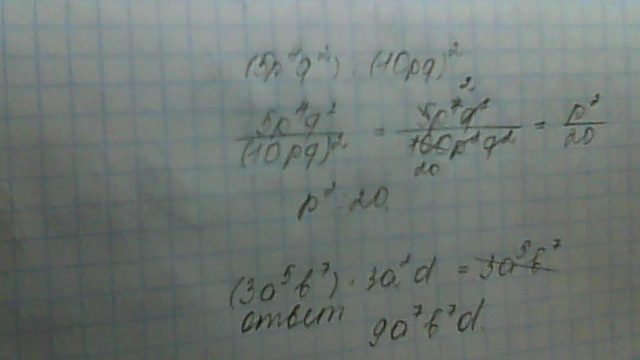 (5p⁴q²) : (10pq)²
5p⁴q² / (10pq)² = 5p⁴q² / 100p²q² = p² / 20
2
20
p² : 20.
(3a⁵b⁷) · 3a²d = 3a⁵b⁷
ответ 9a⁷b⁷d.